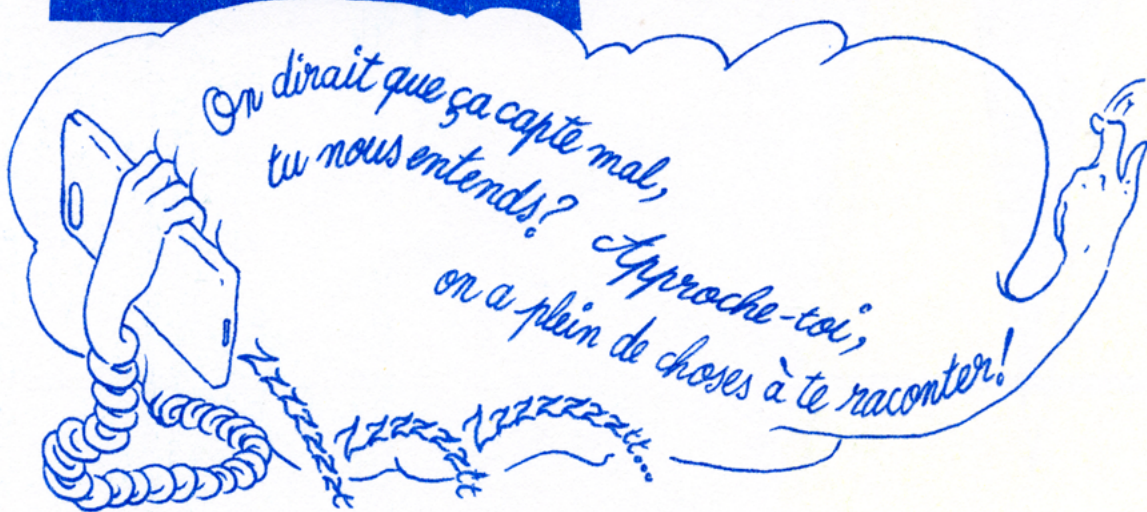 On dirait que ça capte mal,
tu nous entends? Approche-toi,
on a plein de choses à te raconter!
Zzzzzzt Zzzzzztt Zzzzzzztt...